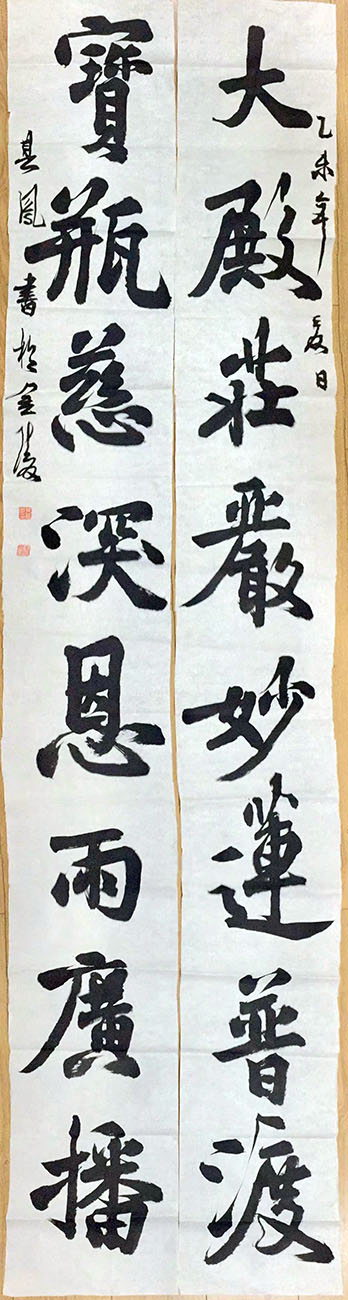 乙未年夏日
大殿莊嚴妙蓮普渡
寶瓶慈深恩雨廣播
具鳳書於金陵